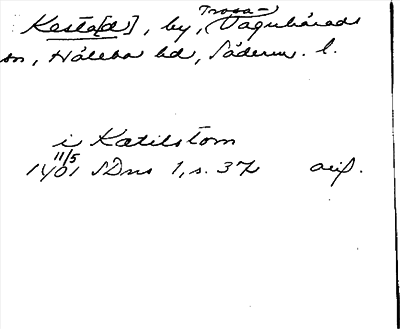 Kesta[d], by, Trosa-Vagnhärads
sn, Hölebo hd, Söderm. l.
i Katilstom
11/5
1401 SDns 1, s. 37 avs.